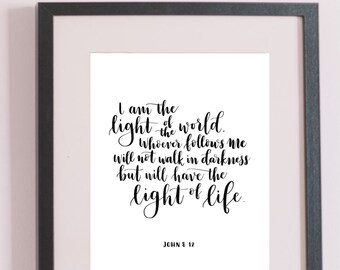 I am the
light of the world.
Whoever follows Me
will not walk in darkness
but will have the
light of life.
JOHN 8 12